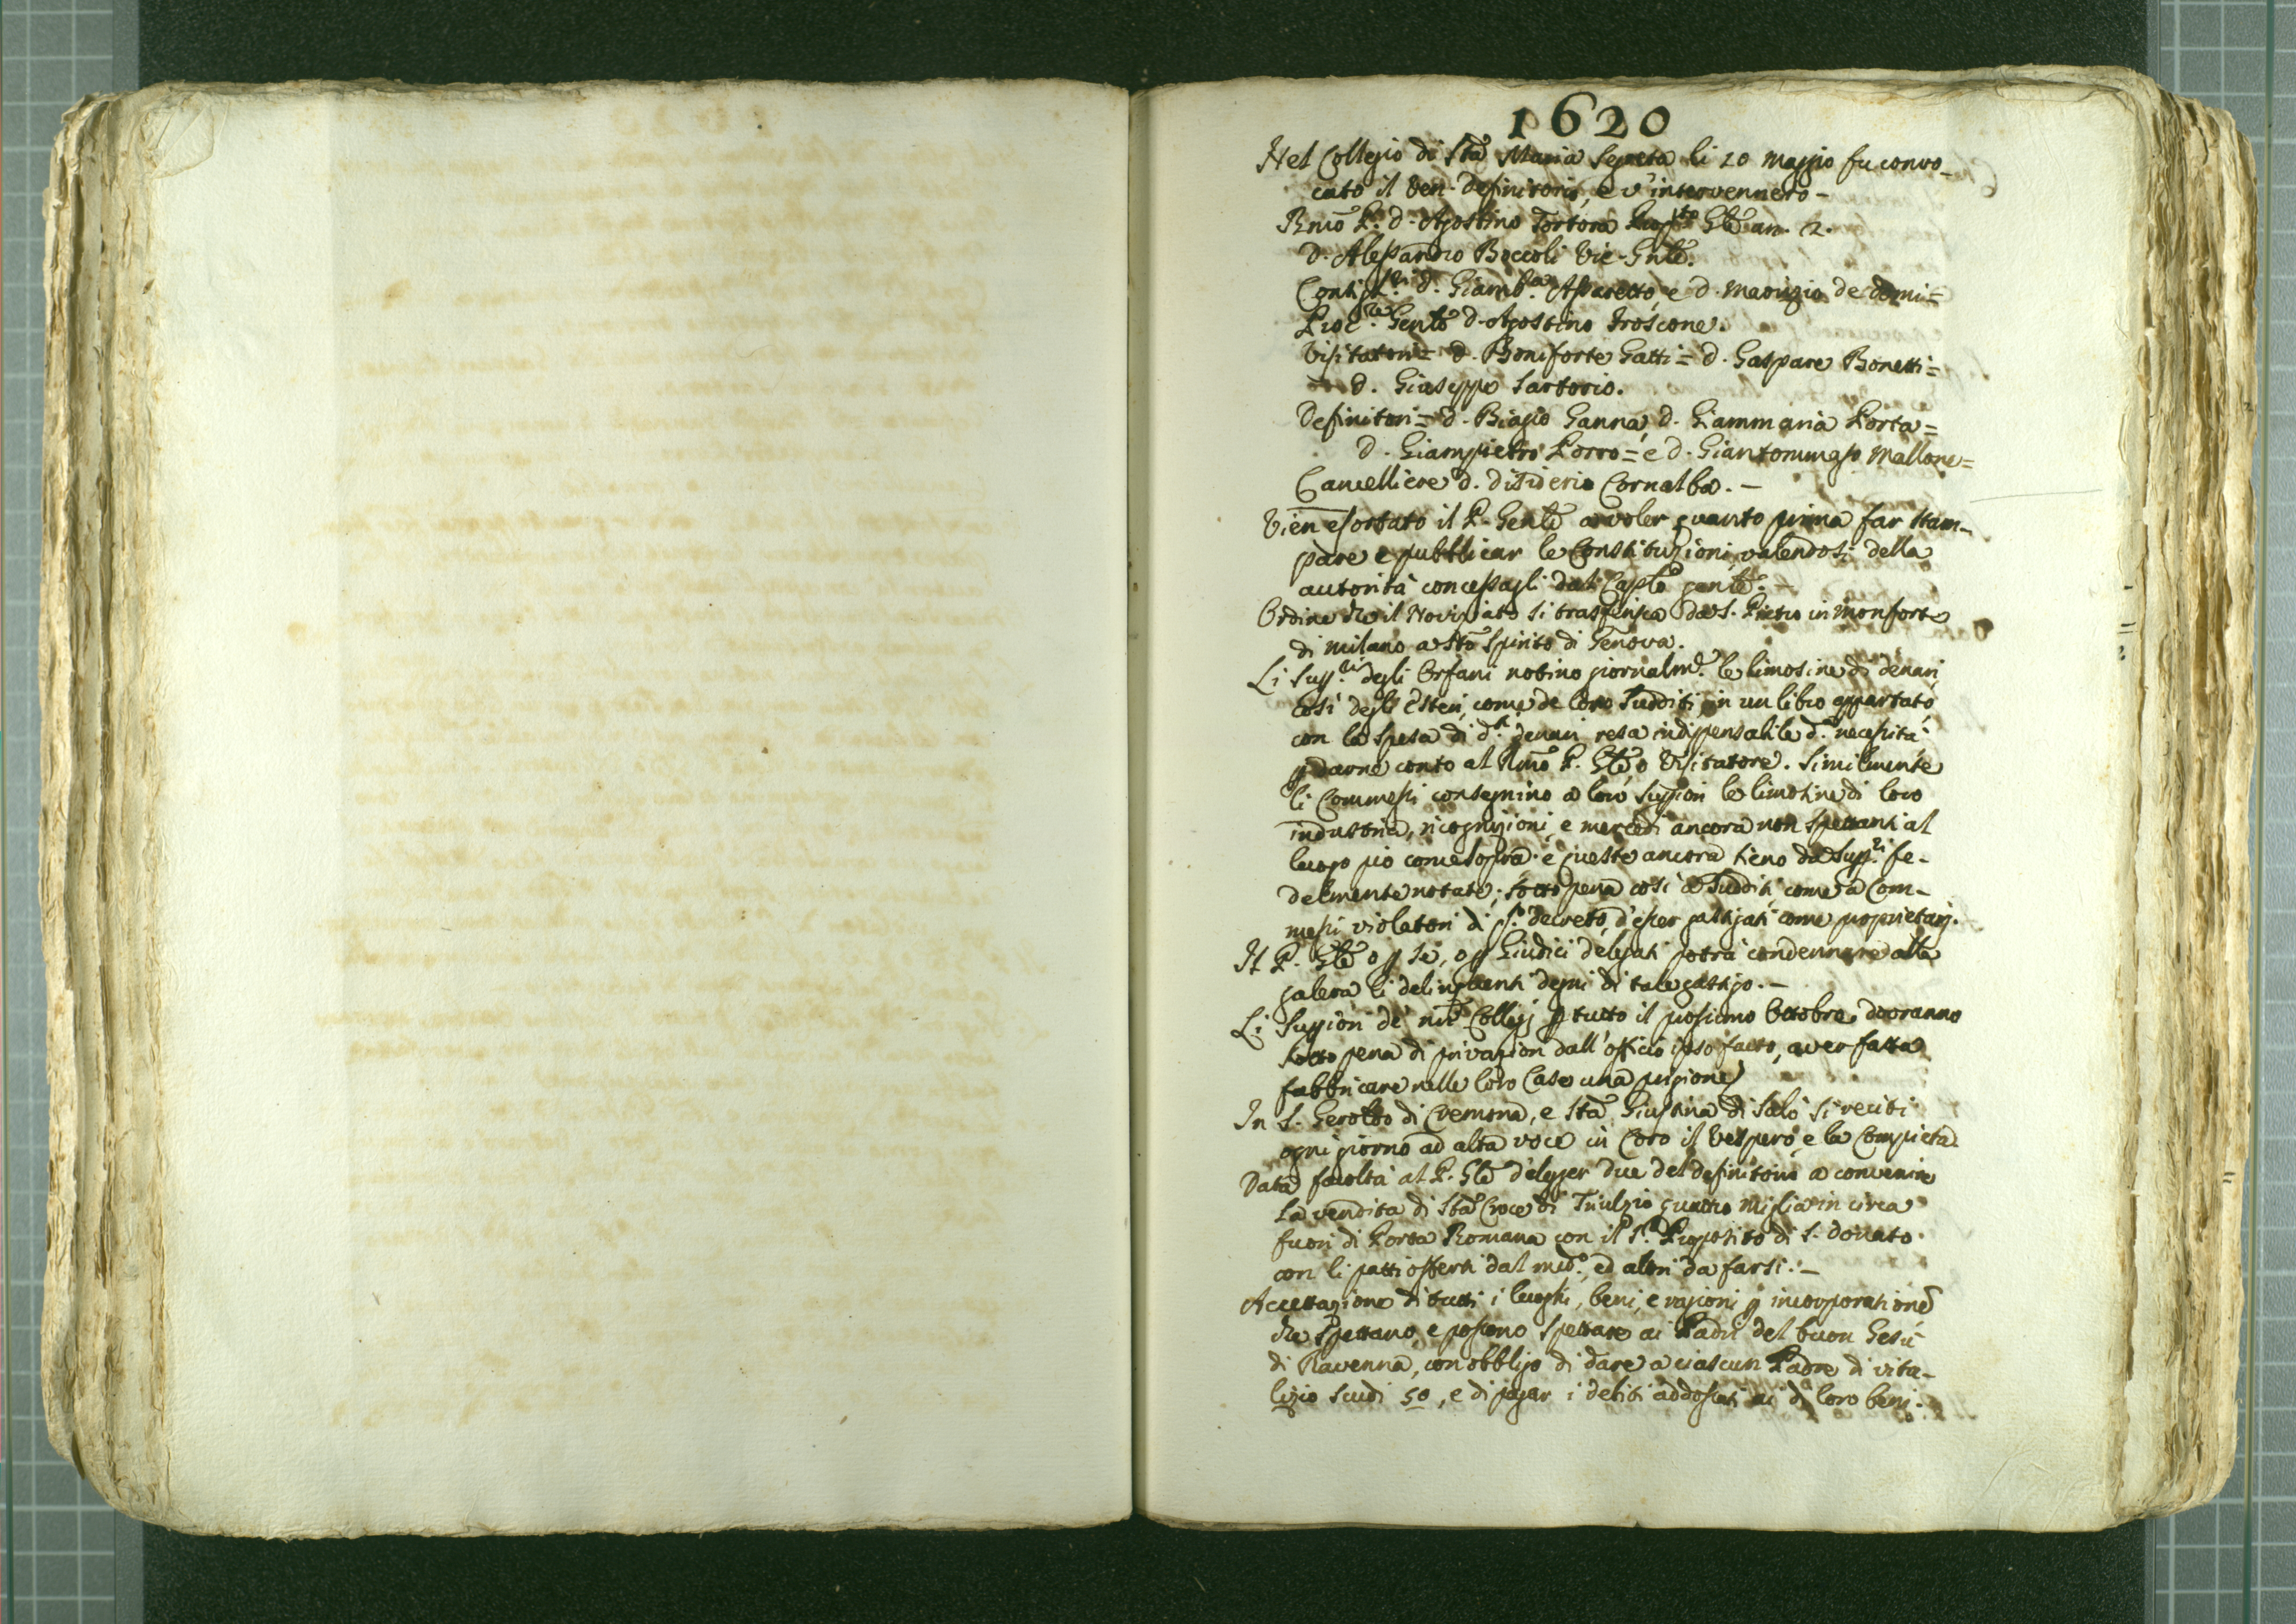 1620
Nel Collegio di Sta Maria Segreta li 20 Maggio fu convo-
cato il Ven. Definitorio, e v'intervennero -
Rmo P. d. Agostino Tortora Gle an. 2.
d. Alessandro Boccoli Vic. Gnle.
d. Giamb.a Assaretto, e d. Maurizio de Domi=
Proc.re Genle d. Agostino Froscone.
Visitatori = d. Boniforte Gatti = d. Gaspare Bonetti =
d. Giuseppe Sartorio.
Definitori = d. Biagio Ganna, d. Giammaria Porta =
d. Giampietro Porro = e d. Giantommaso Mallone =
Cancelliere d. Disiderio Cornalba. -
Vien esortato il P. Genle a voler quanto prima far stam-
pare e pubblicar le Constituzioni, valendosi della
autorità concessagli dal Caplo genle. -
Ordine che il Noviziato si trasferisca da S. Pietro in Monforte
di Milano a Sto Spirito di Genova.
Li Supp.ri degli Orfani notino giornalm.e le limosine di denari,
così degli Esteri, come de loro Sudditi in un libro appartato,
con la spesa di d.ti denari resa indispensabile d.a necessità
p darne conto al Rmo P. Gle o Visitatore. Similmente
li Commessi consegnino a loro Suppiori le limosine di loro
industria, ricognizioni, e mercedi ancora non spettanti al
luogo pio come sopra: e queste ancora sieno da Supp.ri fe-
delmente notate; sotto pena così a Sudditi, come a Com-
messi violatori di q.to decreto, d'esser gastigati come proprietarj.
Il P. Gle o p se, o p Giudici delegati potrà condennare alla
galera li delinquenti degni di tale gastigo. -
Li Suppiori de nri Collegj p tutto il prossimo Ottobre dovranno
sotto pena di privazion dall'officio ipso facto, aver fatta
fabbricare nelle loro Case una prigione.
In S. Geroldo di Cremona, e Sta Giustina di Salò si reciti
ogni giorno ad alta voce in Coro il Vespero, e la Compieta.
Data facoltà al P. Gle d'elegger due del Definitorio a convenire
la vendita di Sta Croce di Triulzio quattro miglia in circa
fuori di Porta Romana con il S.r Proposito di S. Donato.
con li patti offerti dal med.o, ed altri da farsi. -
Accettazione di tutti i luoghi, beni, e ragioni p incorporatione
che spettano, e possono spettare ai Padri del buon Gesù
di Ravenna, con obbligo di dare a ciascun Padre di vita-
lizio scudi 50, e di pagar i debiti addossati ai di loro beni.